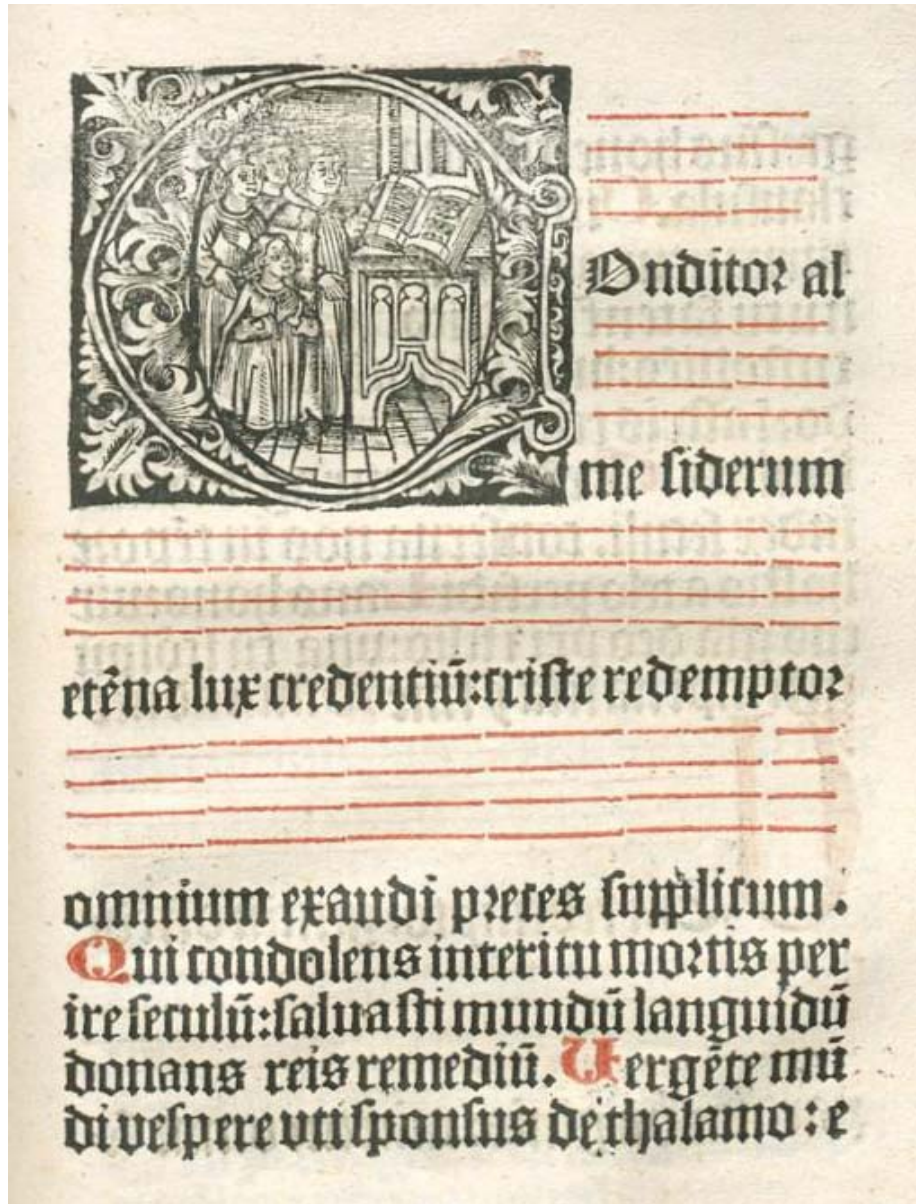 COnditor al
me siderum
etēna lux credentiū:criste redemptor
omnium exaudi preces supplicum.
Qui condolens interitu mortis per
ire seculū:saluasti mundū languidū
donans reis remediū. Uergēte mū
di vespere vti sponsus de thalamo: e